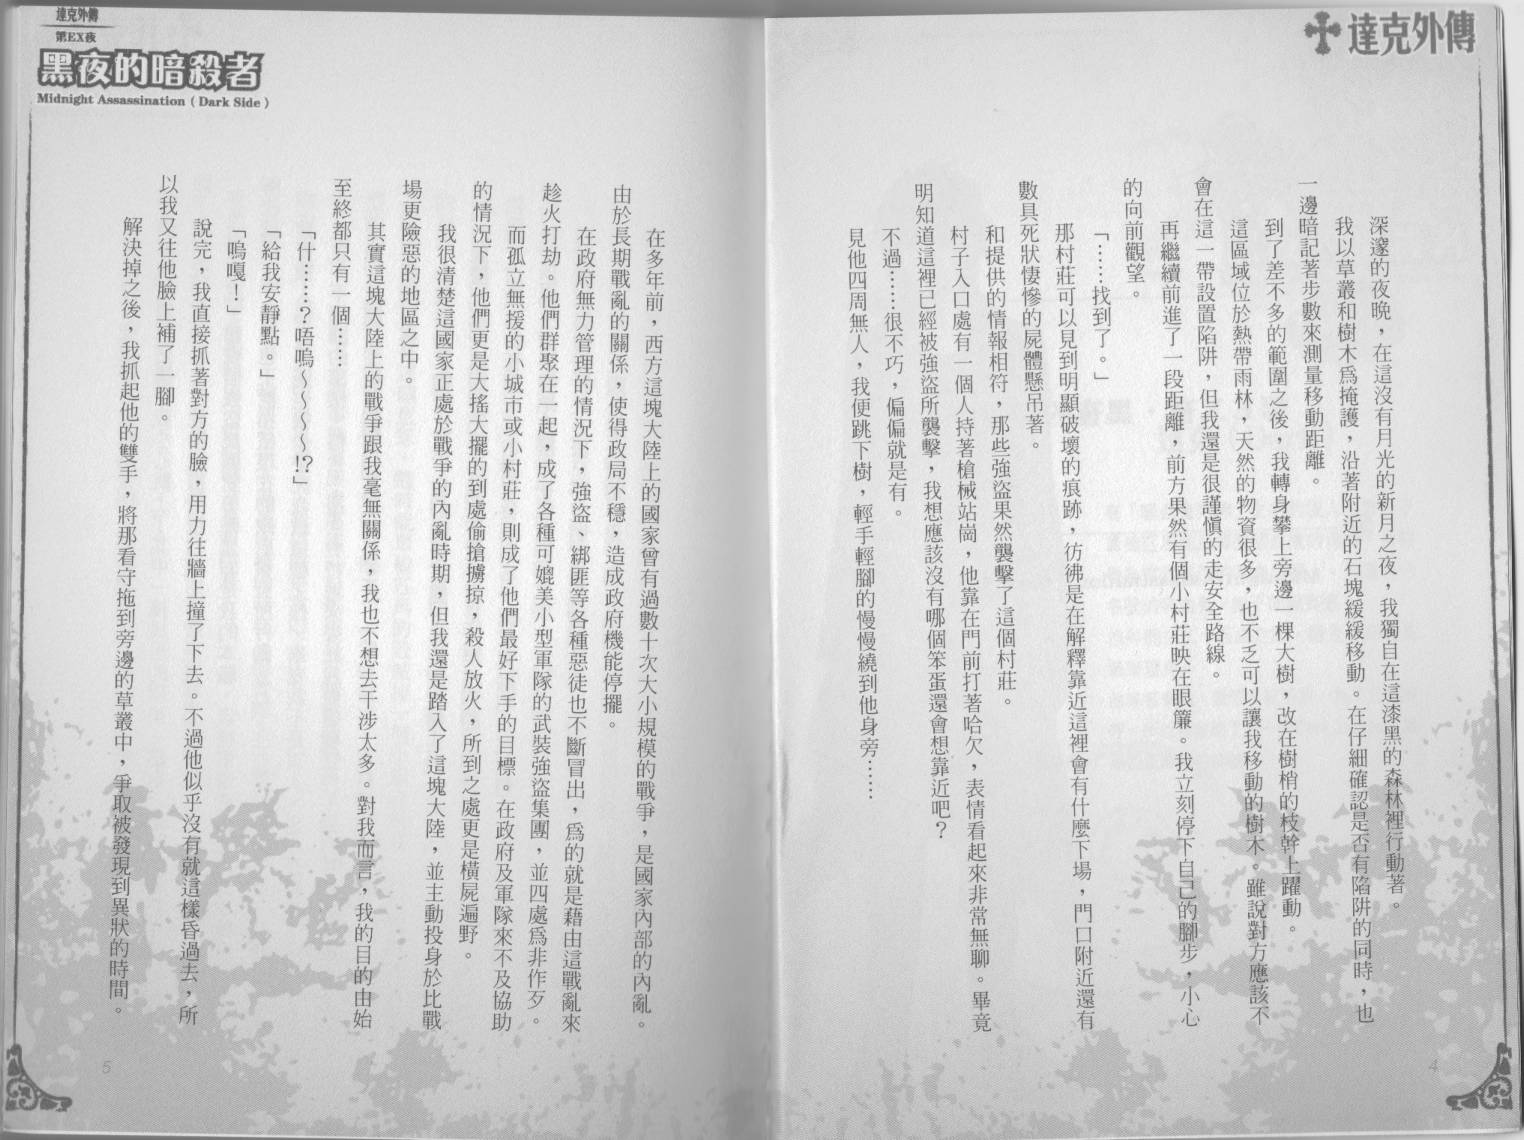 達克外傳
深邃的夜晚，在這沒有月光的新月之夜，我獨自在這漆黑的森林裡行動著。
我以草叢和樹木為掩護，沿著附近的石塊緩緩移動。在仔細確認是否有陷阱的同時，也
一邊暗記著步數來測量移動距離。
到了差不多的範圍之後，我轉身攀上旁邊一棵大樹，改在樹梢的枝幹上躍動。
這區域位於熱帶雨林，天然的物資很多，也不乏可以讓我移動的樹木。雖說對方應該不
會在這一帶設置陷阱，但我還是很謹慎的走安全路線。
再繼續前進了一段距離，前方果然有個小村莊映在眼簾。我立刻停下自己的腳步，小心
的向前觀望。
「……找到了。」
那村莊可以見到明顯破壞的痕跡，彷彿是在解釋靠近這裡會有什麼下場，門口附近還有
數具死狀悽慘的屍體懸吊著。
和提供的情報相符，那些強盜果然襲擊了這個村莊。
村子入口處有一個人持著槍械站崗，他靠在門前打著哈欠，表情看起來非常無聊。畢竟
明知道這裡已經被強盜所襲擊，我想應該沒有哪個笨蛋還會想靠近吧？
不過……很不巧，偏偏就是有。
見他四周無人，我便跳下樹，輕手輕腳的慢慢繞到他身旁……
4
達克外傳
第EX夜
黑夜的暗殺者
Midnight Assassination ( Dark Side )
在多年前，西方這塊大陸上的國家曾有過數十次大小規模的戰爭，是國家內部的內亂。
由於長期戰亂的關係，使得政局不穩，造成政府機能停擺。
在政府無力管理的情況下，強盜、綁匪等各種惡徒也不斷冒出，為的就是藉由這戰亂來
趁火打劫。他們群聚在一起，成了各種可媲美小型軍隊的武裝強盜集團，並四處為非作歹。
而孤立無援的小城市或小村莊，則成了他們最好下手的目標。在政府及軍隊來不及協助
的情況下，他們更是大搖大擺的到處偷搶擄掠，殺人放火，所到之處更是橫屍遍野。
我很清楚這國家正處於戰爭的內亂時期，但我還是踏入了這塊大陸，並主動投身於比戰
場更險惡的地區之中。
其實這塊大陸上的戰爭跟我毫無關係，我也不想去干涉太多。對我而言，我的目的由始
至終都只有一個……
「什……？唔嗚～～～～!?」
「給我安靜點。」
「嗚嘎！」
說完，我直接抓著對方的臉，用力往牆上撞了下去。不過他似乎沒有就這樣昏過去，所
以我又往他臉上補了一腳。
解決掉之後，我抓起他的雙手，將那看守拖到旁邊的草叢中，爭取被發現到異狀的時間。
5